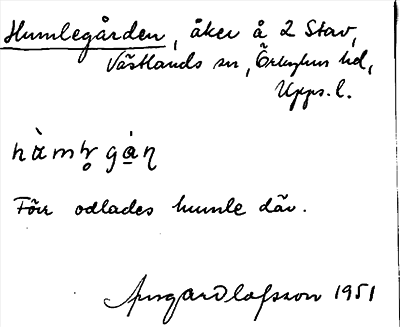 Humlegården, åker å 2 Stav,
Västlands sn, Örbyhus hd,
Upps. l.
hàmḷ gá̱ṇ
Förr odlades humle där.
Ansgar Olofsson 1951